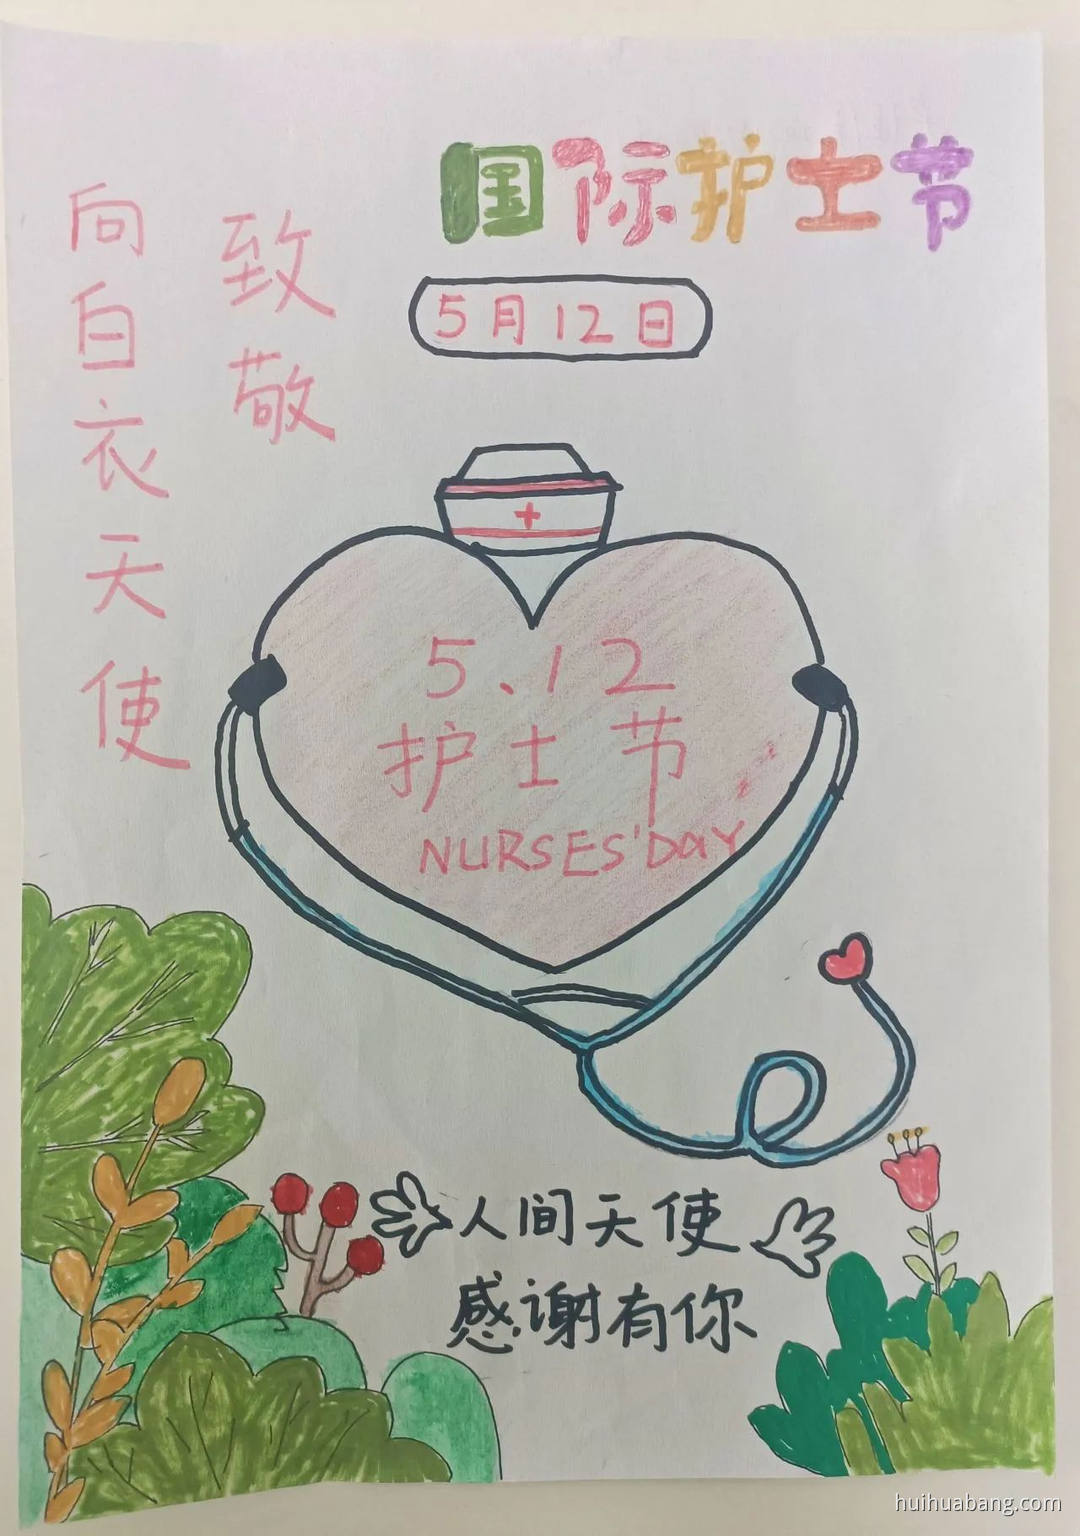 国际护士节
5月12日
向白衣天使
致敬
5.12
护士节
NURSES'DaY
人间天使
感谢有你
huihuabang.com